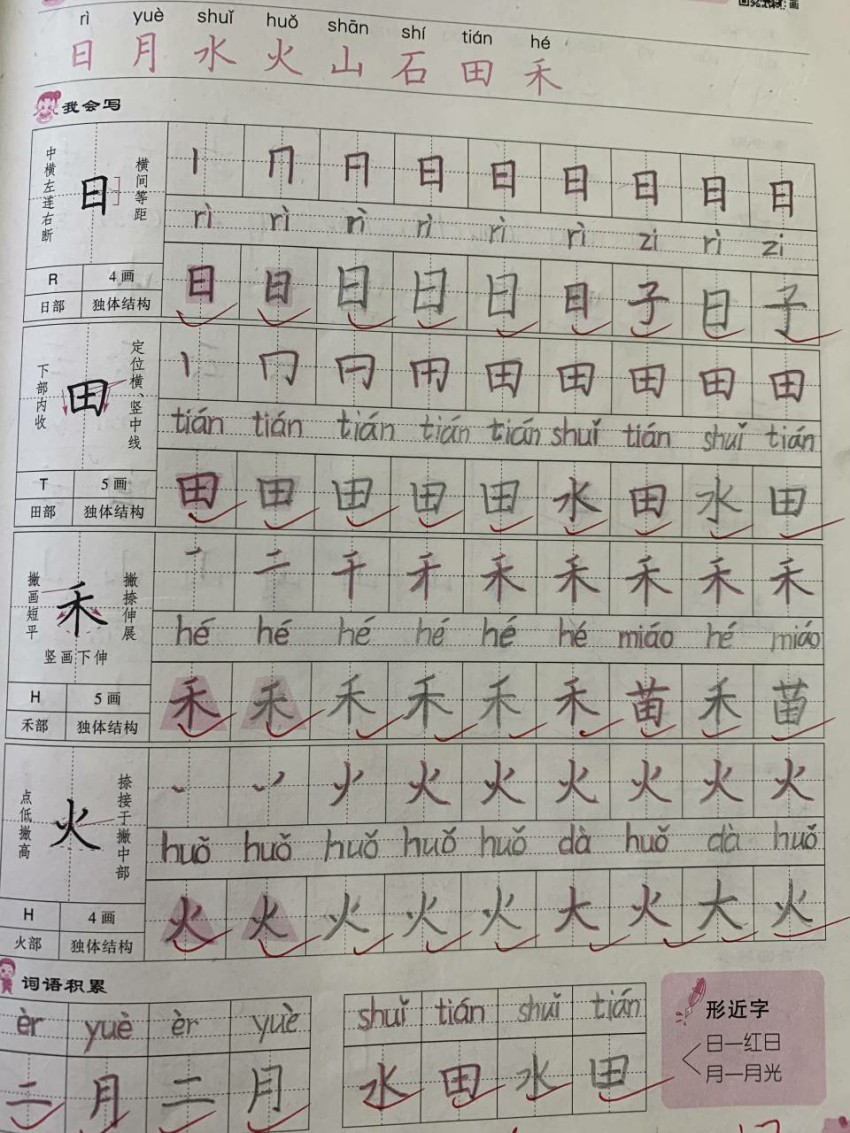 rì yuè shuǐ huǒ shān shí tián hé
日 月 水 火 山 石 田 禾
我会写
中横左连右断
日
横间等距
丨 冂 日 日 日 日 日 日
rì rì rì rì rì rì zi rì zi
R 4画
日 日 日 日 日 日 子 日 子
日部 独体结构
下部内收
田
定位横、竖中线
丨 冂 田 田 田 田 田
tián tián tián tián tián shuǐ tián shuǐ tián
T 5画
田 田 田 田 田 水 田 水 田
田部 独体结构
撇画短平
禾
撇捺伸展
竖画下伸
一 二 千 禾 禾 禾 禾 禾
hé hé hé hé hé hé miáo hé miáo
H 5画
禾 禾 禾 禾 禾 禾 苗 禾 苗
禾部 独体结构
点低撇高
火
捺接于撇中部
火 火 火 火 火 火
huǒ huǒ huǒ huǒ huǒ dà huǒ dà huǒ
H 4画
火 火 火 火 火 大 火 大 火
火部 独体结构
词语积累
èr yuè èr yuè
二 月 二 月
shuǐ tián shuǐ tián
水 田 水 田
形近字
日—红日
月—月光